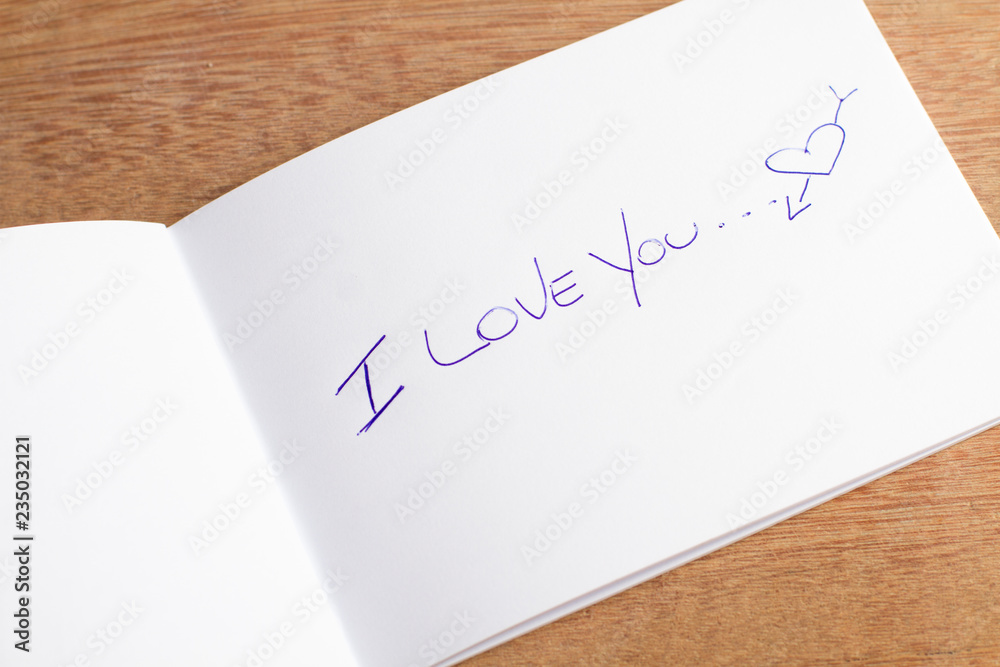 I LOVE YOU....
Adobe Stock | #235032121